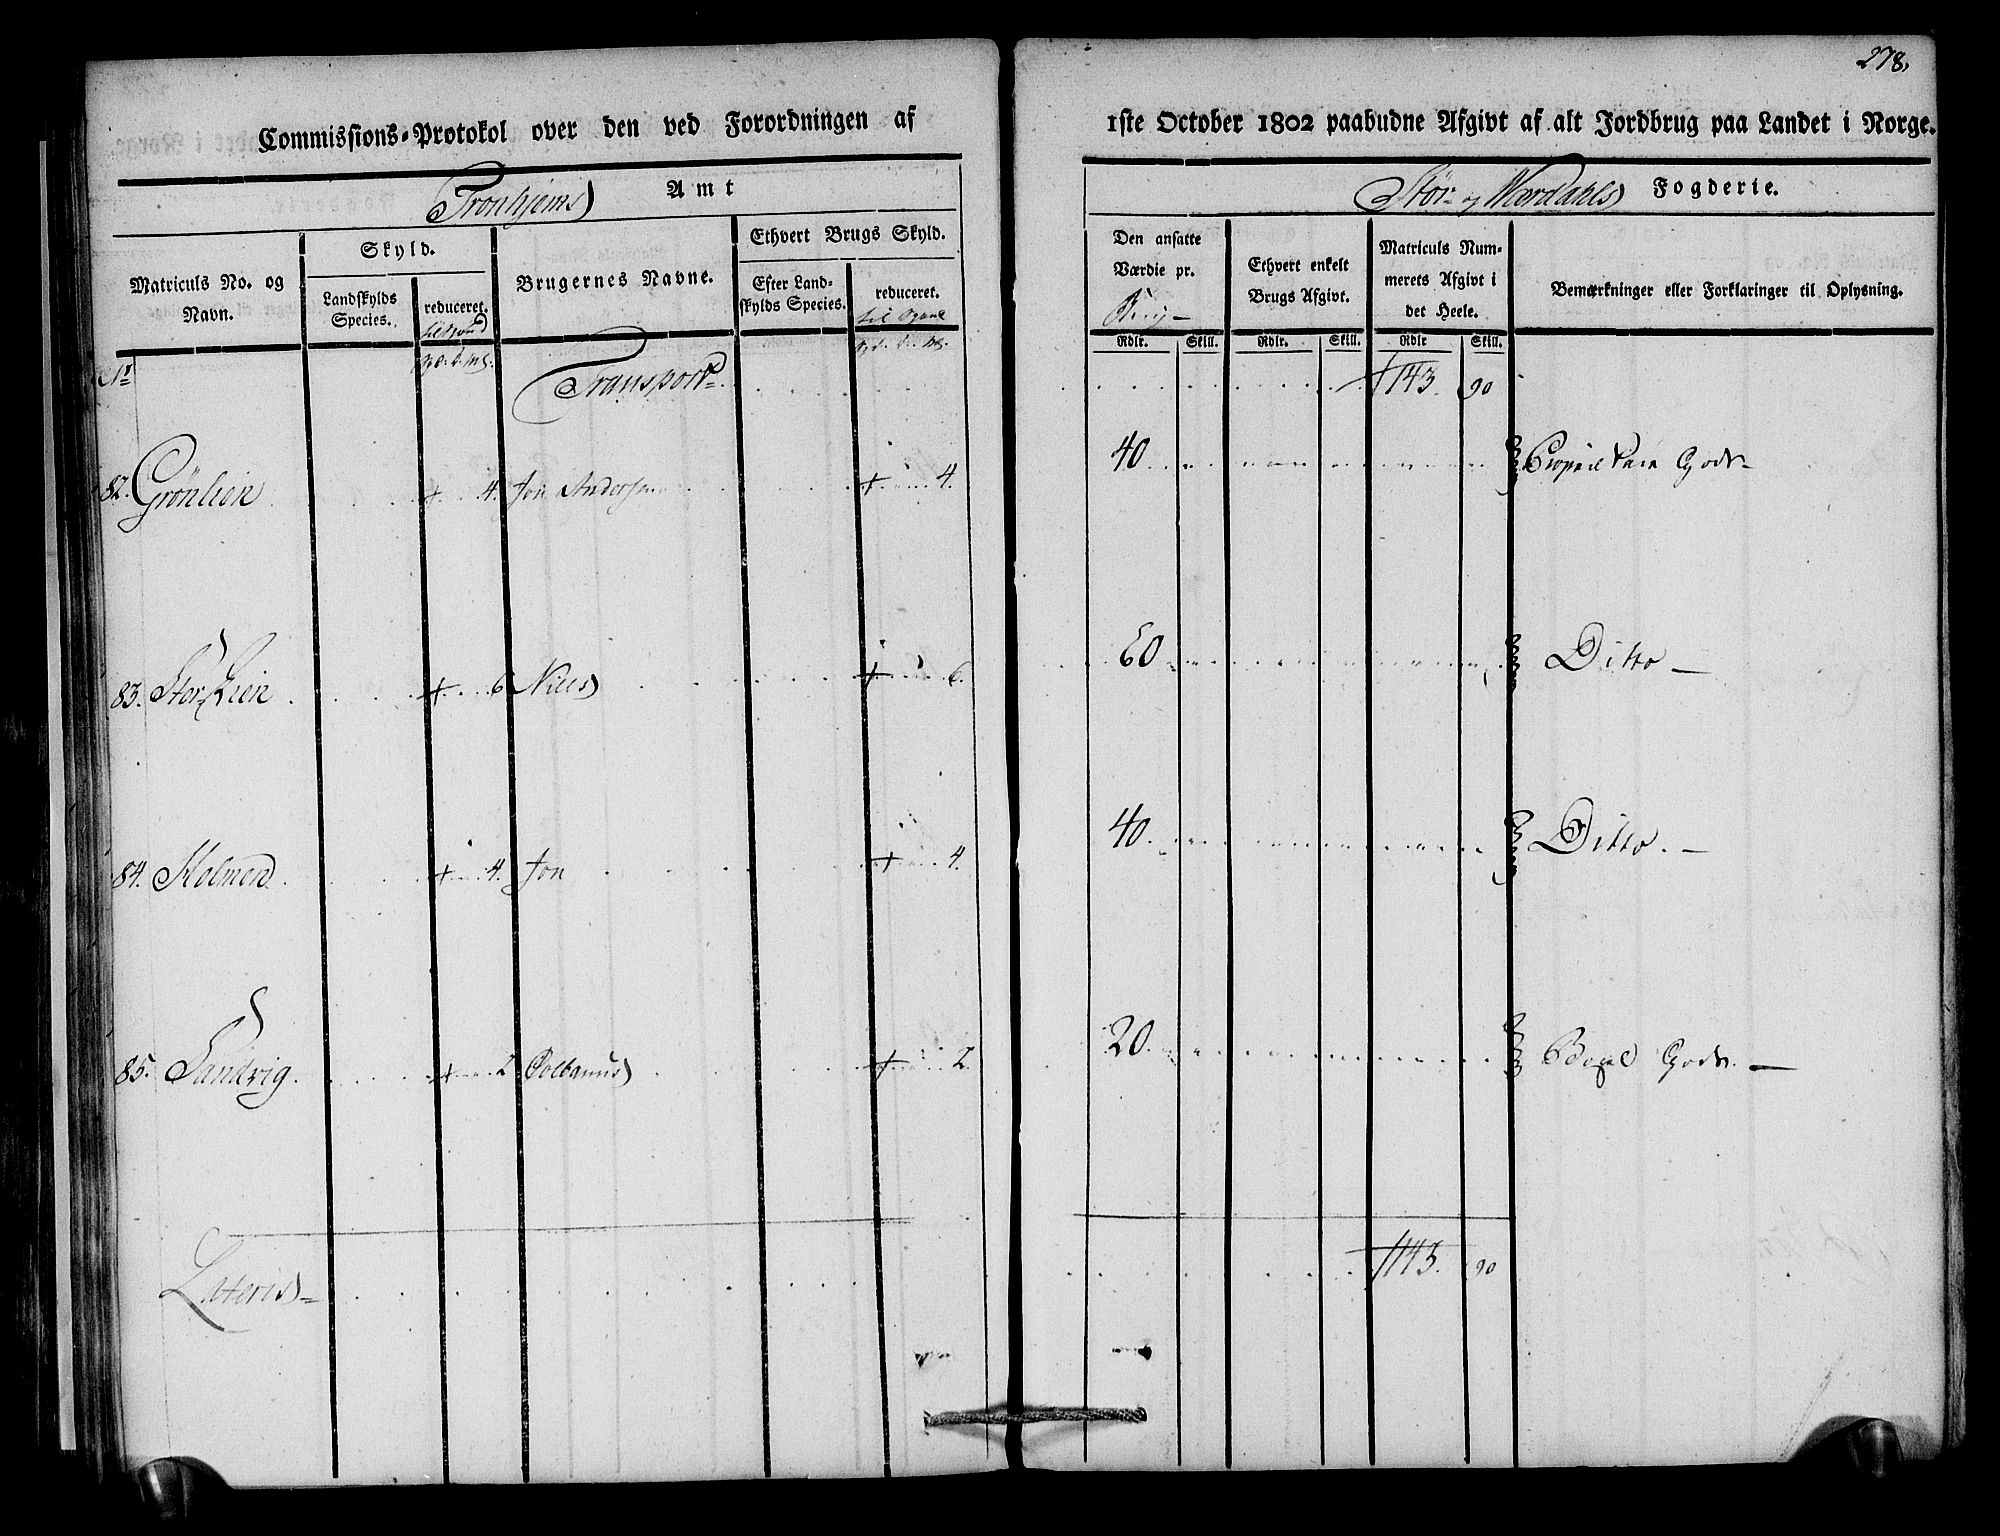 278.
Commissions-Protokol over den ved Forordningen af
1ste October 1802 paabudne Afgivt af alt Jordbrug paa Landet i Norge.
Tronhjems Amt
Stør- og Værdahls Fogderie.
Matriculs No. og Navn.
Skyld.
Landskylds Species.
reduceret.
Brugernes Navne.
Ethvert Brugs Skyld.
Efter Landskylds Species.
reduceret.
Den ansatte Værdie pr.
Ethvert enkelt Brugs Afgivt.
Matriculs Nummerets Afgivt i det Heele.
Bemærkninger eller Forklaringer til Oplysning.
Rdlr. Skill. Rdlr. Skill. Rdlr Skill.
No Transport 1143. 90
82. Grønlien 4. Jon Andersen 4. 40 Gods
83. Stor Lien 6 Niels 6. 60 Ditto
84. Holmen 4. Jon 4. 40. Ditto.
85. Sandvig. 2 2. 20. Gods.
Lateris 1143. 90